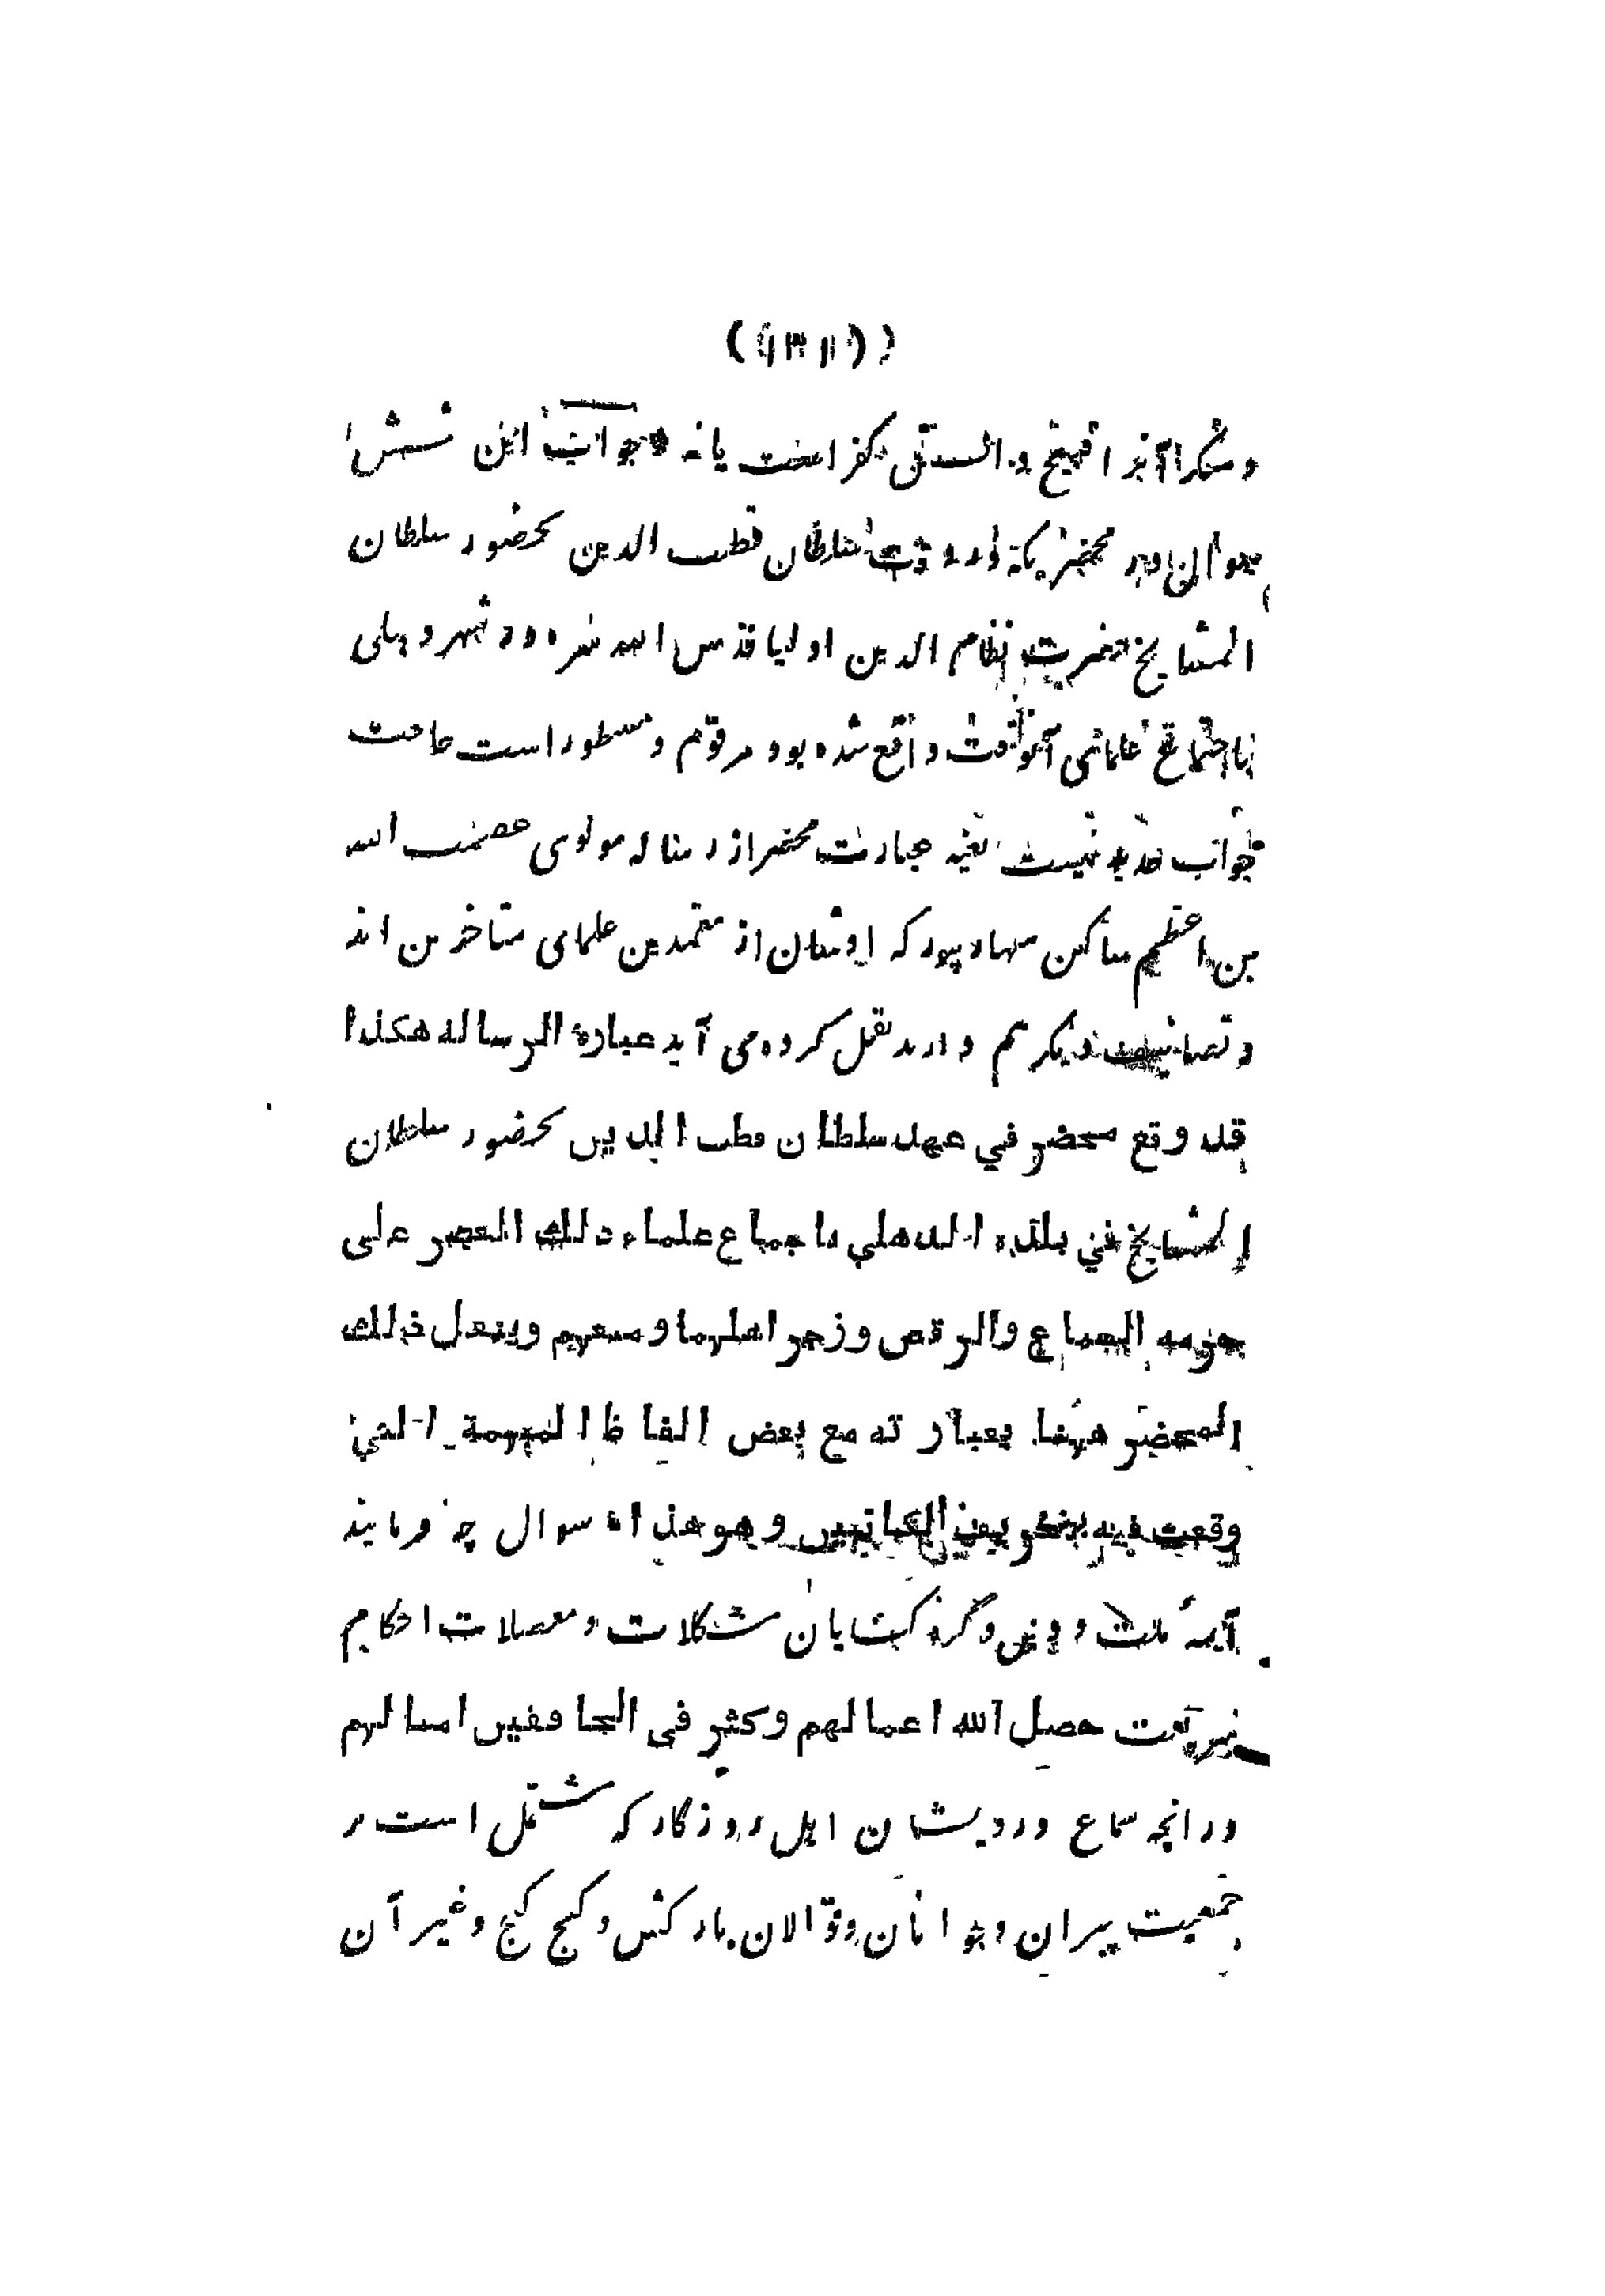 جواب این شش
سوال در محضریکه در وقت سلطان قطب الدین بحضور سلطان
المشایخ حضرت نظام الدین اولیا قدس الله سره در شهر دهلی
باجتماع علمای آنوقت واقع شده بود مرقوم و مسطور است حاجت
جواب نیست بعینه عبارت محضر از رساله مولوی عصمت الله
بن اعظم ساکن سهارپور که ایشان از معتمدین علمای متاخرین اند
و تصانیف دیگر هم دارند نقل کرده می آید عبارة الرسالة هکذا
قد وقع محضر في عهد سلطان قطب الدین بحضور سلطان
المشایخ في بلدة الدهلي باجماع علماء ذلك العصر على
حرمة السماع والرقص وزجر اهلهما ومنعهم وینقل ذلك
المحضر ههنا بعبارته مع بعض الفاظ المبهمة التي
وقعت فیه بتحریف الکاتبین وهو هذا سوال چه فرمایند
آیمهٔ ملت و دین و گره کشایان مشکلات و معضلات احکام
شریعت حصل الله اعمالهم وکثر فی الخافقین امثالهم
در انچه سماع درویشان اهل روزگار که مشتمل است بر
جمعیت پیران و جوانان و قوالان بارکش و کج کج و غیر آن